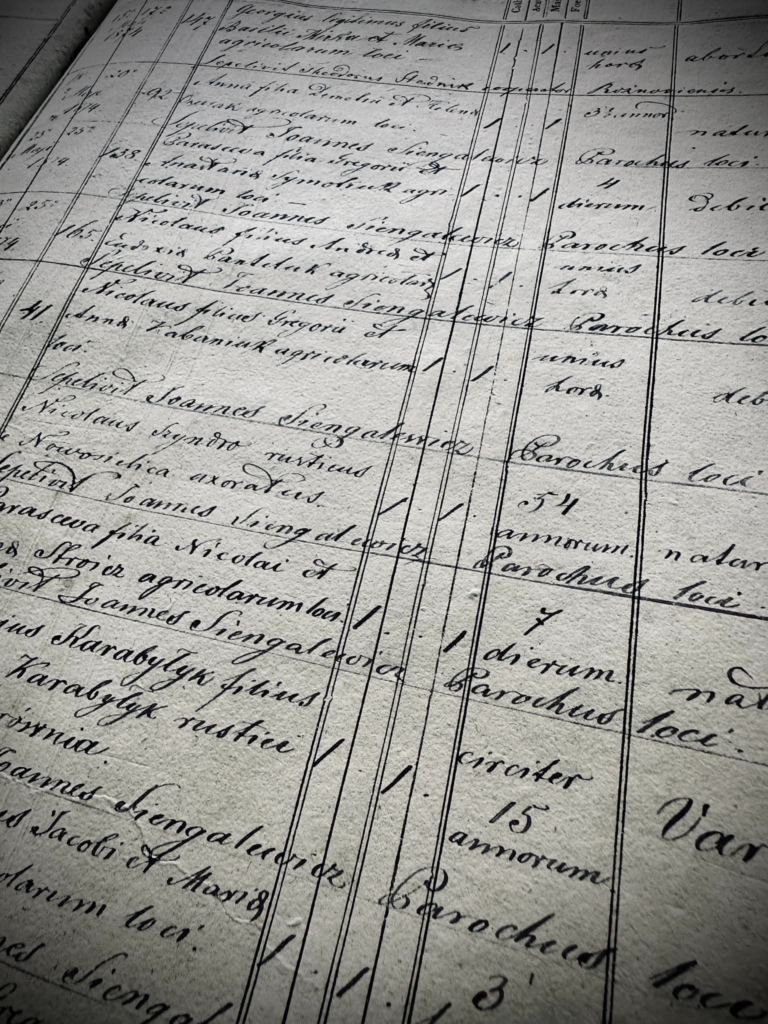 147 Georgius legitimus filius
Basilii Mirka et Mariæ
agricolarum loci 1 1 unius horæ
Sepelivit Theodorus cooperator Rożnoviensis.
92 Anna filia Demetrii et Helenæ
agricolarum loci. 1 1 3 annor natur
Sepelivit Joannes Siengalewicz Parochus loci.
138. Parasceva filia Gregorii et
Anastasiæ agri-
colarum loci 1 1 4 dierum debi
Sepelivit Joannes Siengalewicz Parochus loci
165. Nicolaus filius Andreæ et
Eudoxiæ Panteluk agricolar 1 1 unius horæ debi
Sepelivit Joannes Siengalewicz Parochus lo
41. Nicolaus filius Gregorii et
Annæ Kabaniuk agricolarum 1 1 unius horæ deb
loci.
Sepelivit Joannes Siengalewicz Parochus loci
Nicolaus Szyndro rusticus
Nowosielica uxoratus. 1 1 54 annorum natur
Sepelivit Joannes Siengalewicz Parochus loci.
Parasceva filia Nicolai et
Stroicz agricolarum loci. 1 1 7 dierum. nat
ivit Joannes Siengalewicz Parochus loci.
ius Karabytyk filius
Karabytyk rustici 1 1 circiter 15 annorum Var
równia
Joannes Siengalewicz Parochus loci
us Jacobi et Mariæ
olarum loci. 1 1 3
es Siengal